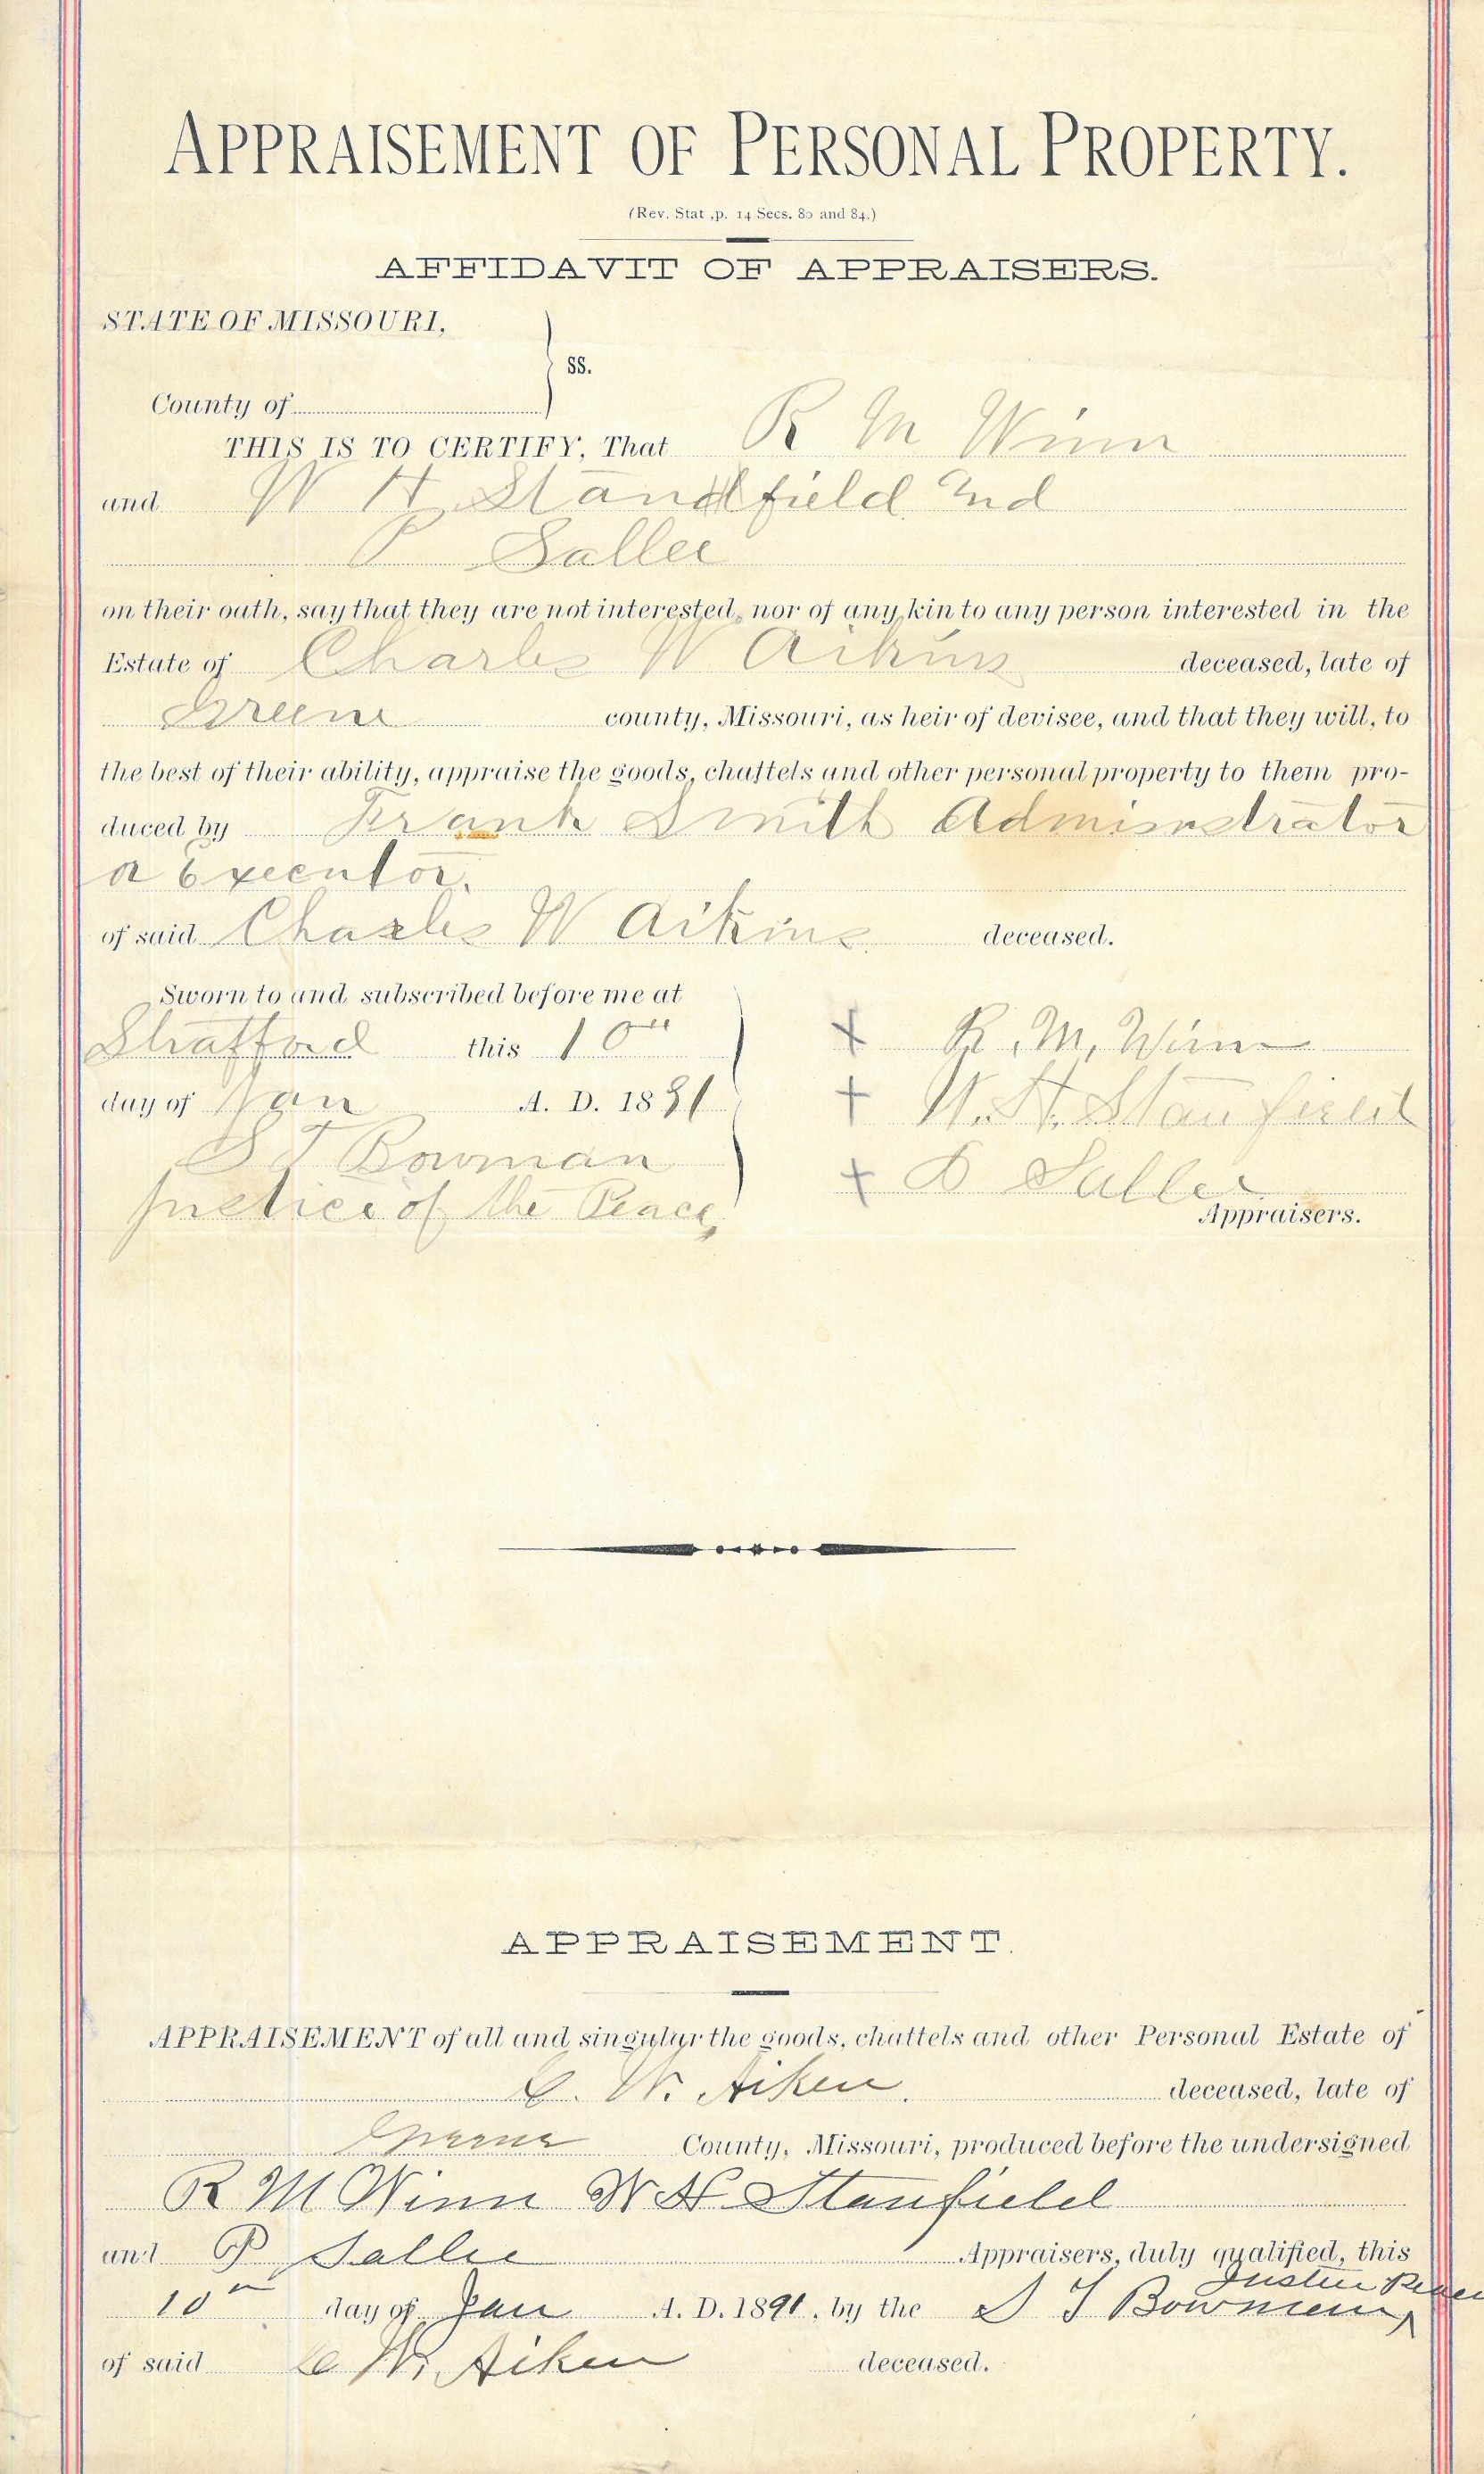 APPRAISEMENT OF PERSONAL PROPERTY.
(Rev. Stat ,p. 14 Secs. 80 and 84.)
AFFIDAVIT OF APPRAISERS.
STATE OF MISSOURI,
ss.
County of
THIS IS TO CERTIFY, That R M Winn
and W H Standfield And
P Sallee
on their oath, say that they are not interested, nor of any kin to any person interested in the
Estate of Charles W Aikins deceased, late of
Greene county, Missouri, as heir of devisee, and that they will, to
the best of their ability, appraise the goods, chattels and other personal property to them pro-
duced by Frank Smith Adminstrator
or Executor.
of said Charles W Aikins deceased.
Sworn to and subscribed before me at
Strafford this 10th
day of Jan A. D. 1891
S T Bowman
Justice of the Peace,
+ R. M, Winn
+ W. H. Stanfield
+ P Sallee
Appraisers.
APPRAISEMENT.
APPRAISEMENT of all and singular the goods, chattels and other Personal Estate of
C. W. Aiken. deceased, late of
Greene County, Missouri, produced before the undersigned
R M Winn W H Stanfield
and P Sallee Appraisers, duly qualified, this
10th day of Jan A. D. 1891, by the S T Bowman Justice Peace
of said C W. Aiken deceased.